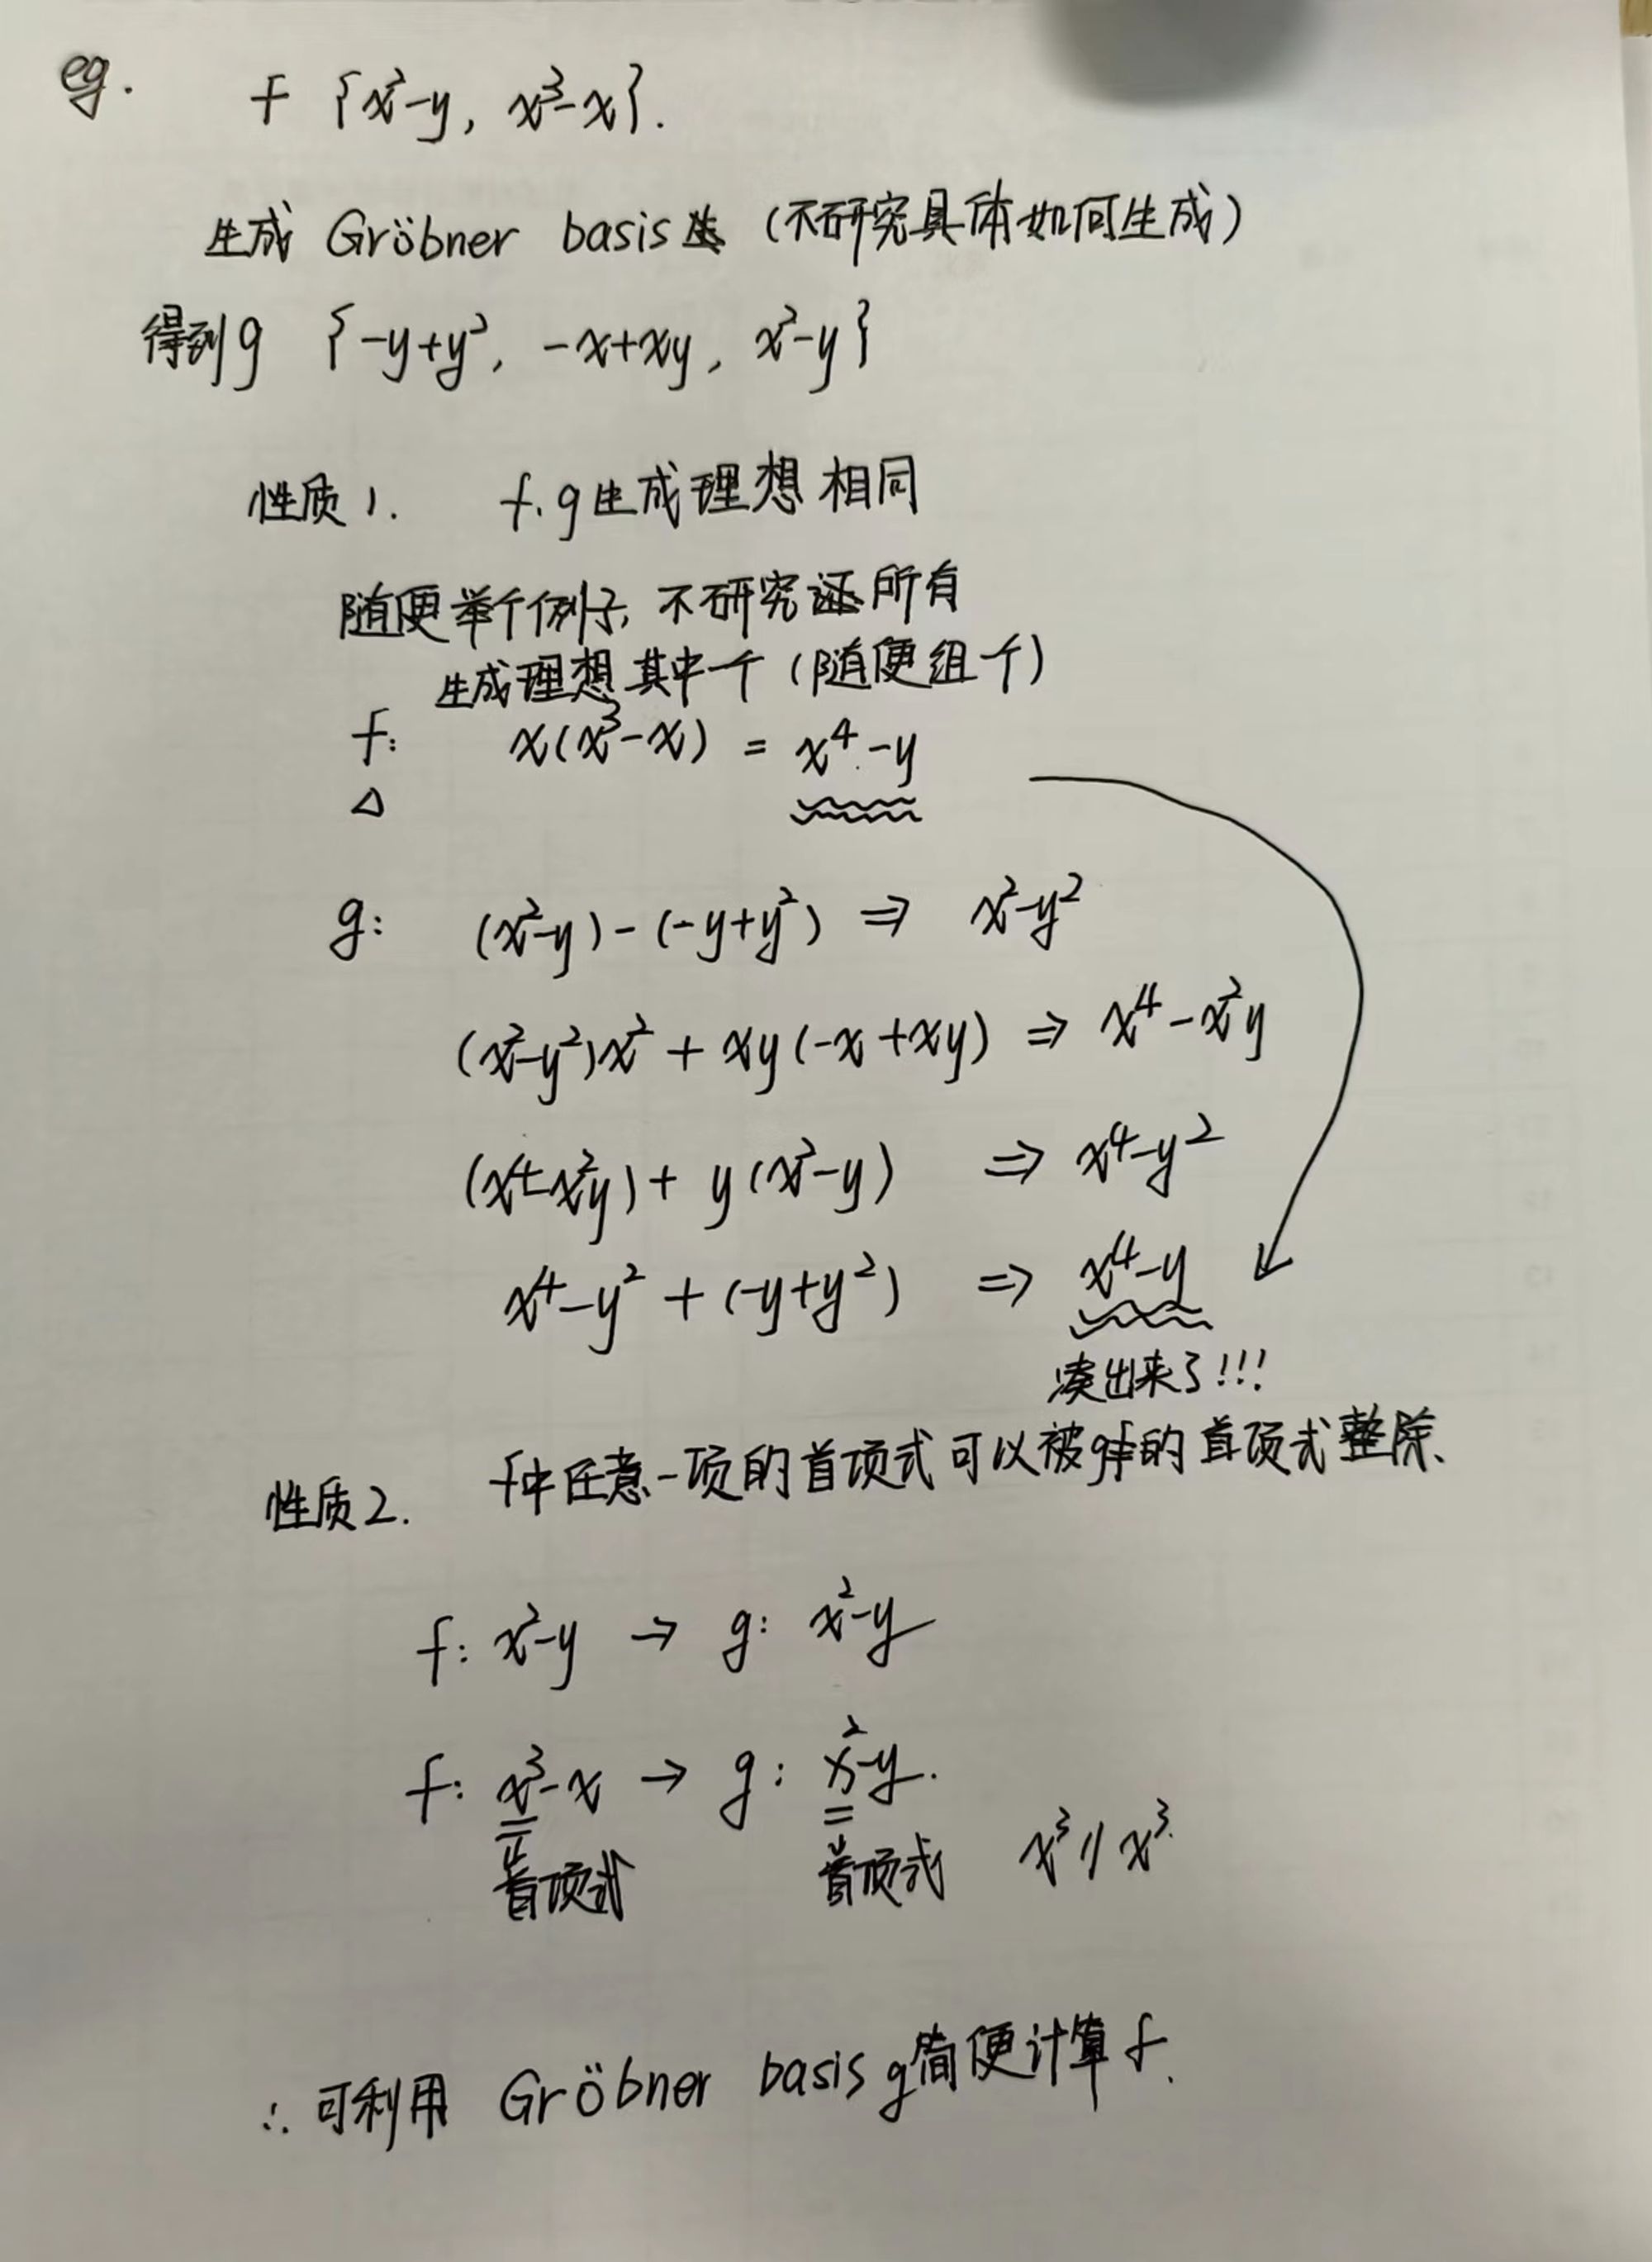 eg. f {x²-y, x³-x}.
生成 Gröbner basis (不研究具体如何生成)
得到g {-y+y², -x+xy, x²-y}
性质1. f、g生成理想相同
随便举个例子, 不研究证所有
生成理想其中一个 (随便组个)
f: x(x³-x) = x⁴-y
△
g: (x²-y)-(-y+y²) ⇒ x²-y²
(x²-y²)x² + xy(-x+xy) ⇒ x⁴-x²y
(x⁴-x²y) + y(x²-y) ⇒ x⁴-y²
x⁴-y² + (-y+y²) ⇒ x⁴-y
凑出来了!!!
性质2. f中任意一项的首项式可以被g的首项式整除、
f: x²-y → g: x²-y
f: x³-x → g: x²-y.
首项式 首项式 x³ // x³.
∴ 可利用 Gröbner basis g简便计算f.